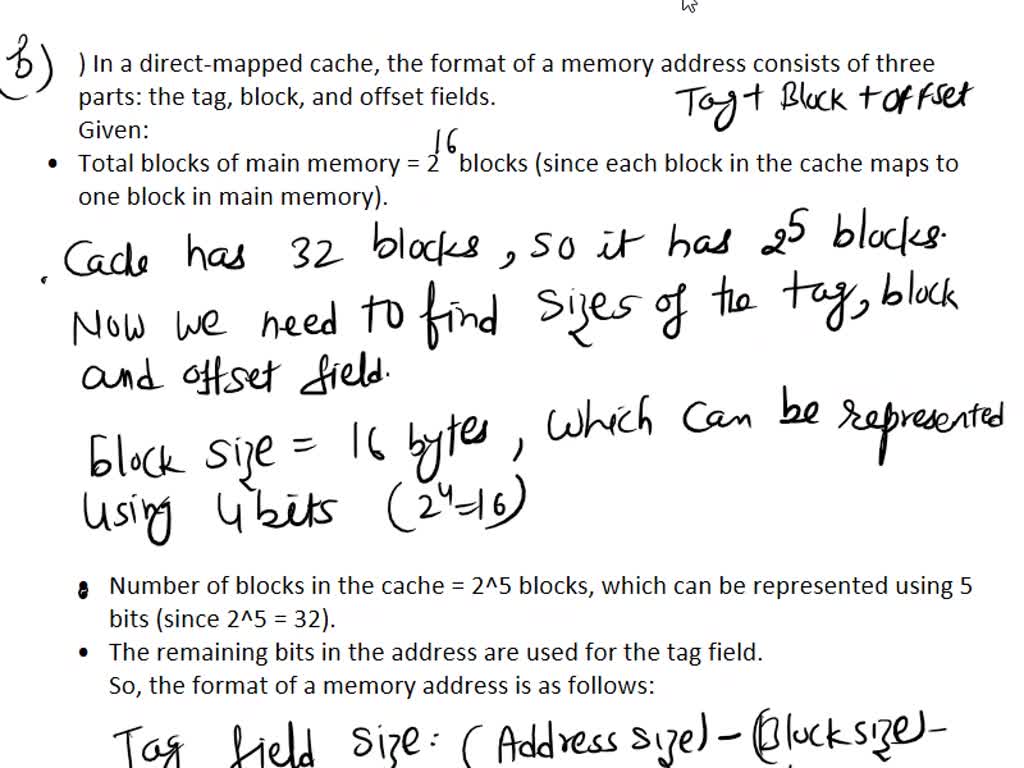 b) ) In a direct-mapped cache, the format of a memory address consists of three
parts: the tag, block, and offset fields.
Tag + Block + offset
Given:
• Total blocks of main memory = 2^16 blocks (since each block in the cache maps to
one block in main memory).
. Cache has 32 blocks, so it has 2^5 blocks.
Now we need to find sizes of the tag, block
and offset field.
Block size = 16 bytes, which can be represented
using 4 bits (2^4=16)
• Number of blocks in the cache = 2^5 blocks, which can be represented using 5
bits (since 2^5 = 32).
• The remaining bits in the address are used for the tag field.
So, the format of a memory address is as follows:
Tag field size: (Address size) - (Block size) -